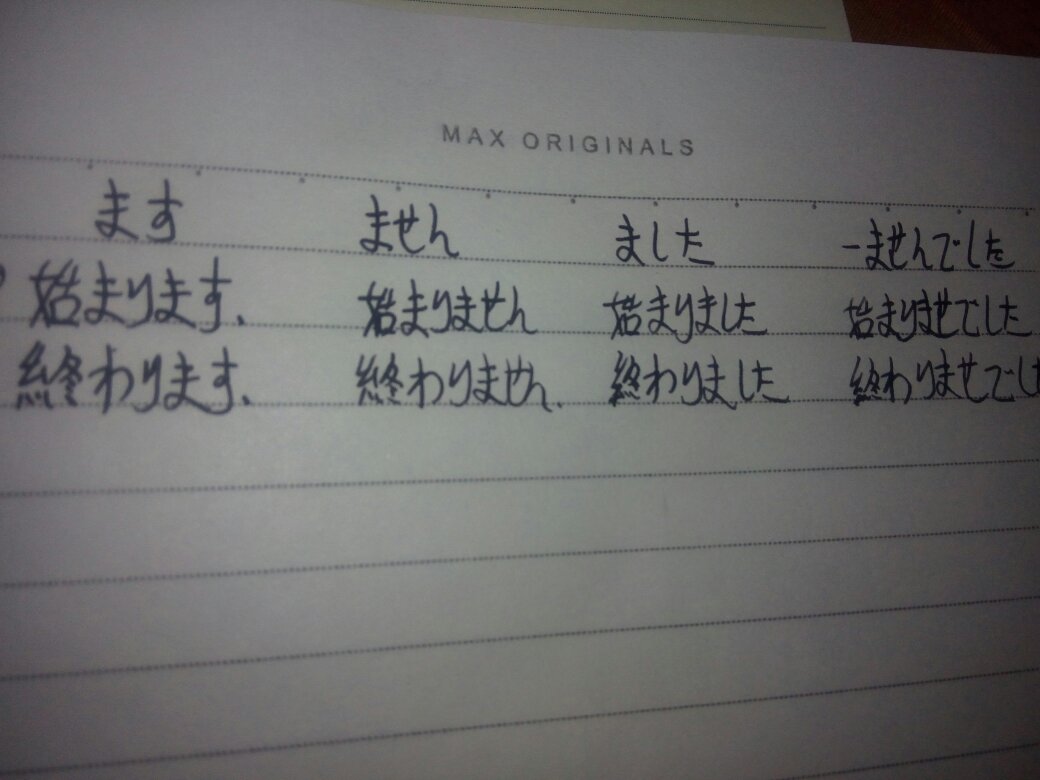 MAX ORIGINALS
ます ません ました -ませんでした
始まります. 始まりません 始まりました 始まりませでした
終わります. 終わりません. 終わりました 終わりませでし